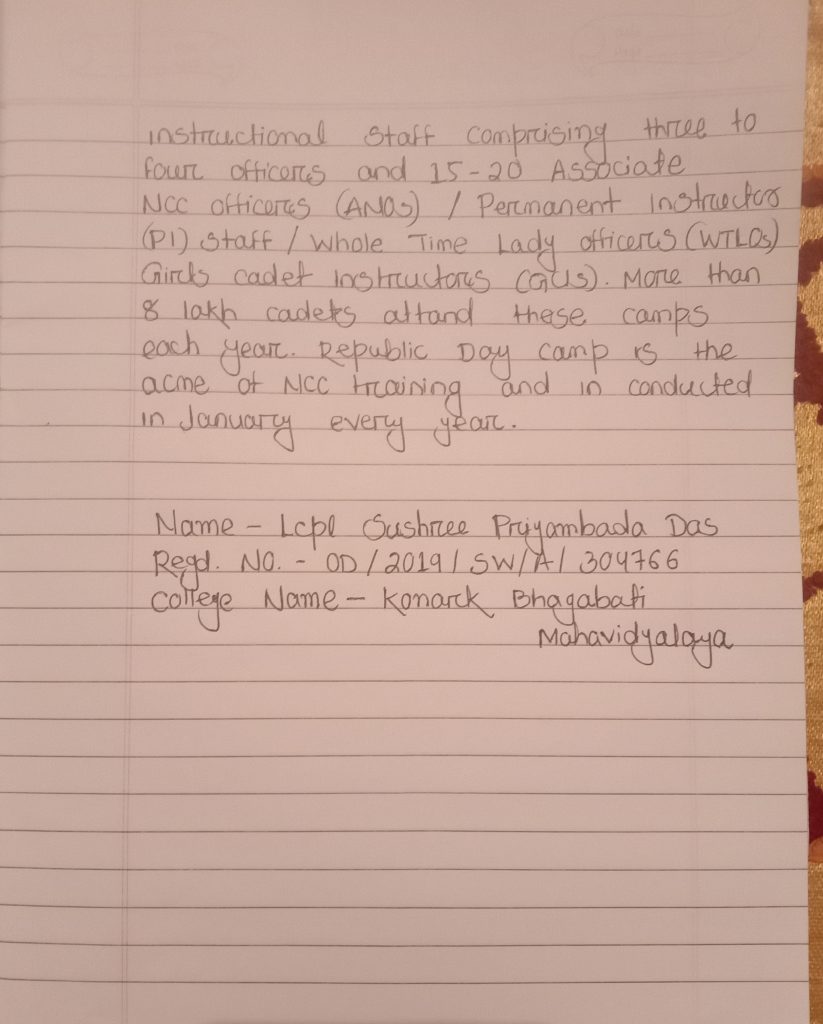 instructional staff comprising three to
four officers and 15-20 Associate
NCC officers (ANOs) / Permanent Instructor
(PI) staff / Whole Time Lady officers (WTLOs)
Girls cadet Instructors (GCIs). More than
8 lakh cadets attand these camps
each year. Republic Day camp is the
acme of NCC training and in conducted
in January every year.
Name - Lcpl Sushree Priyambada Das
Regd. NO. - OD/2019/SW/A/304766
College Name - Konark Bhagabati
Mahavidyalaya